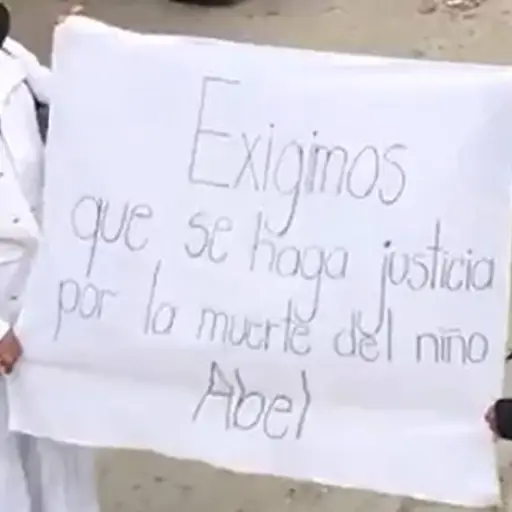 Exigimos
que se haga justicia
por la muerte del niño
Abel